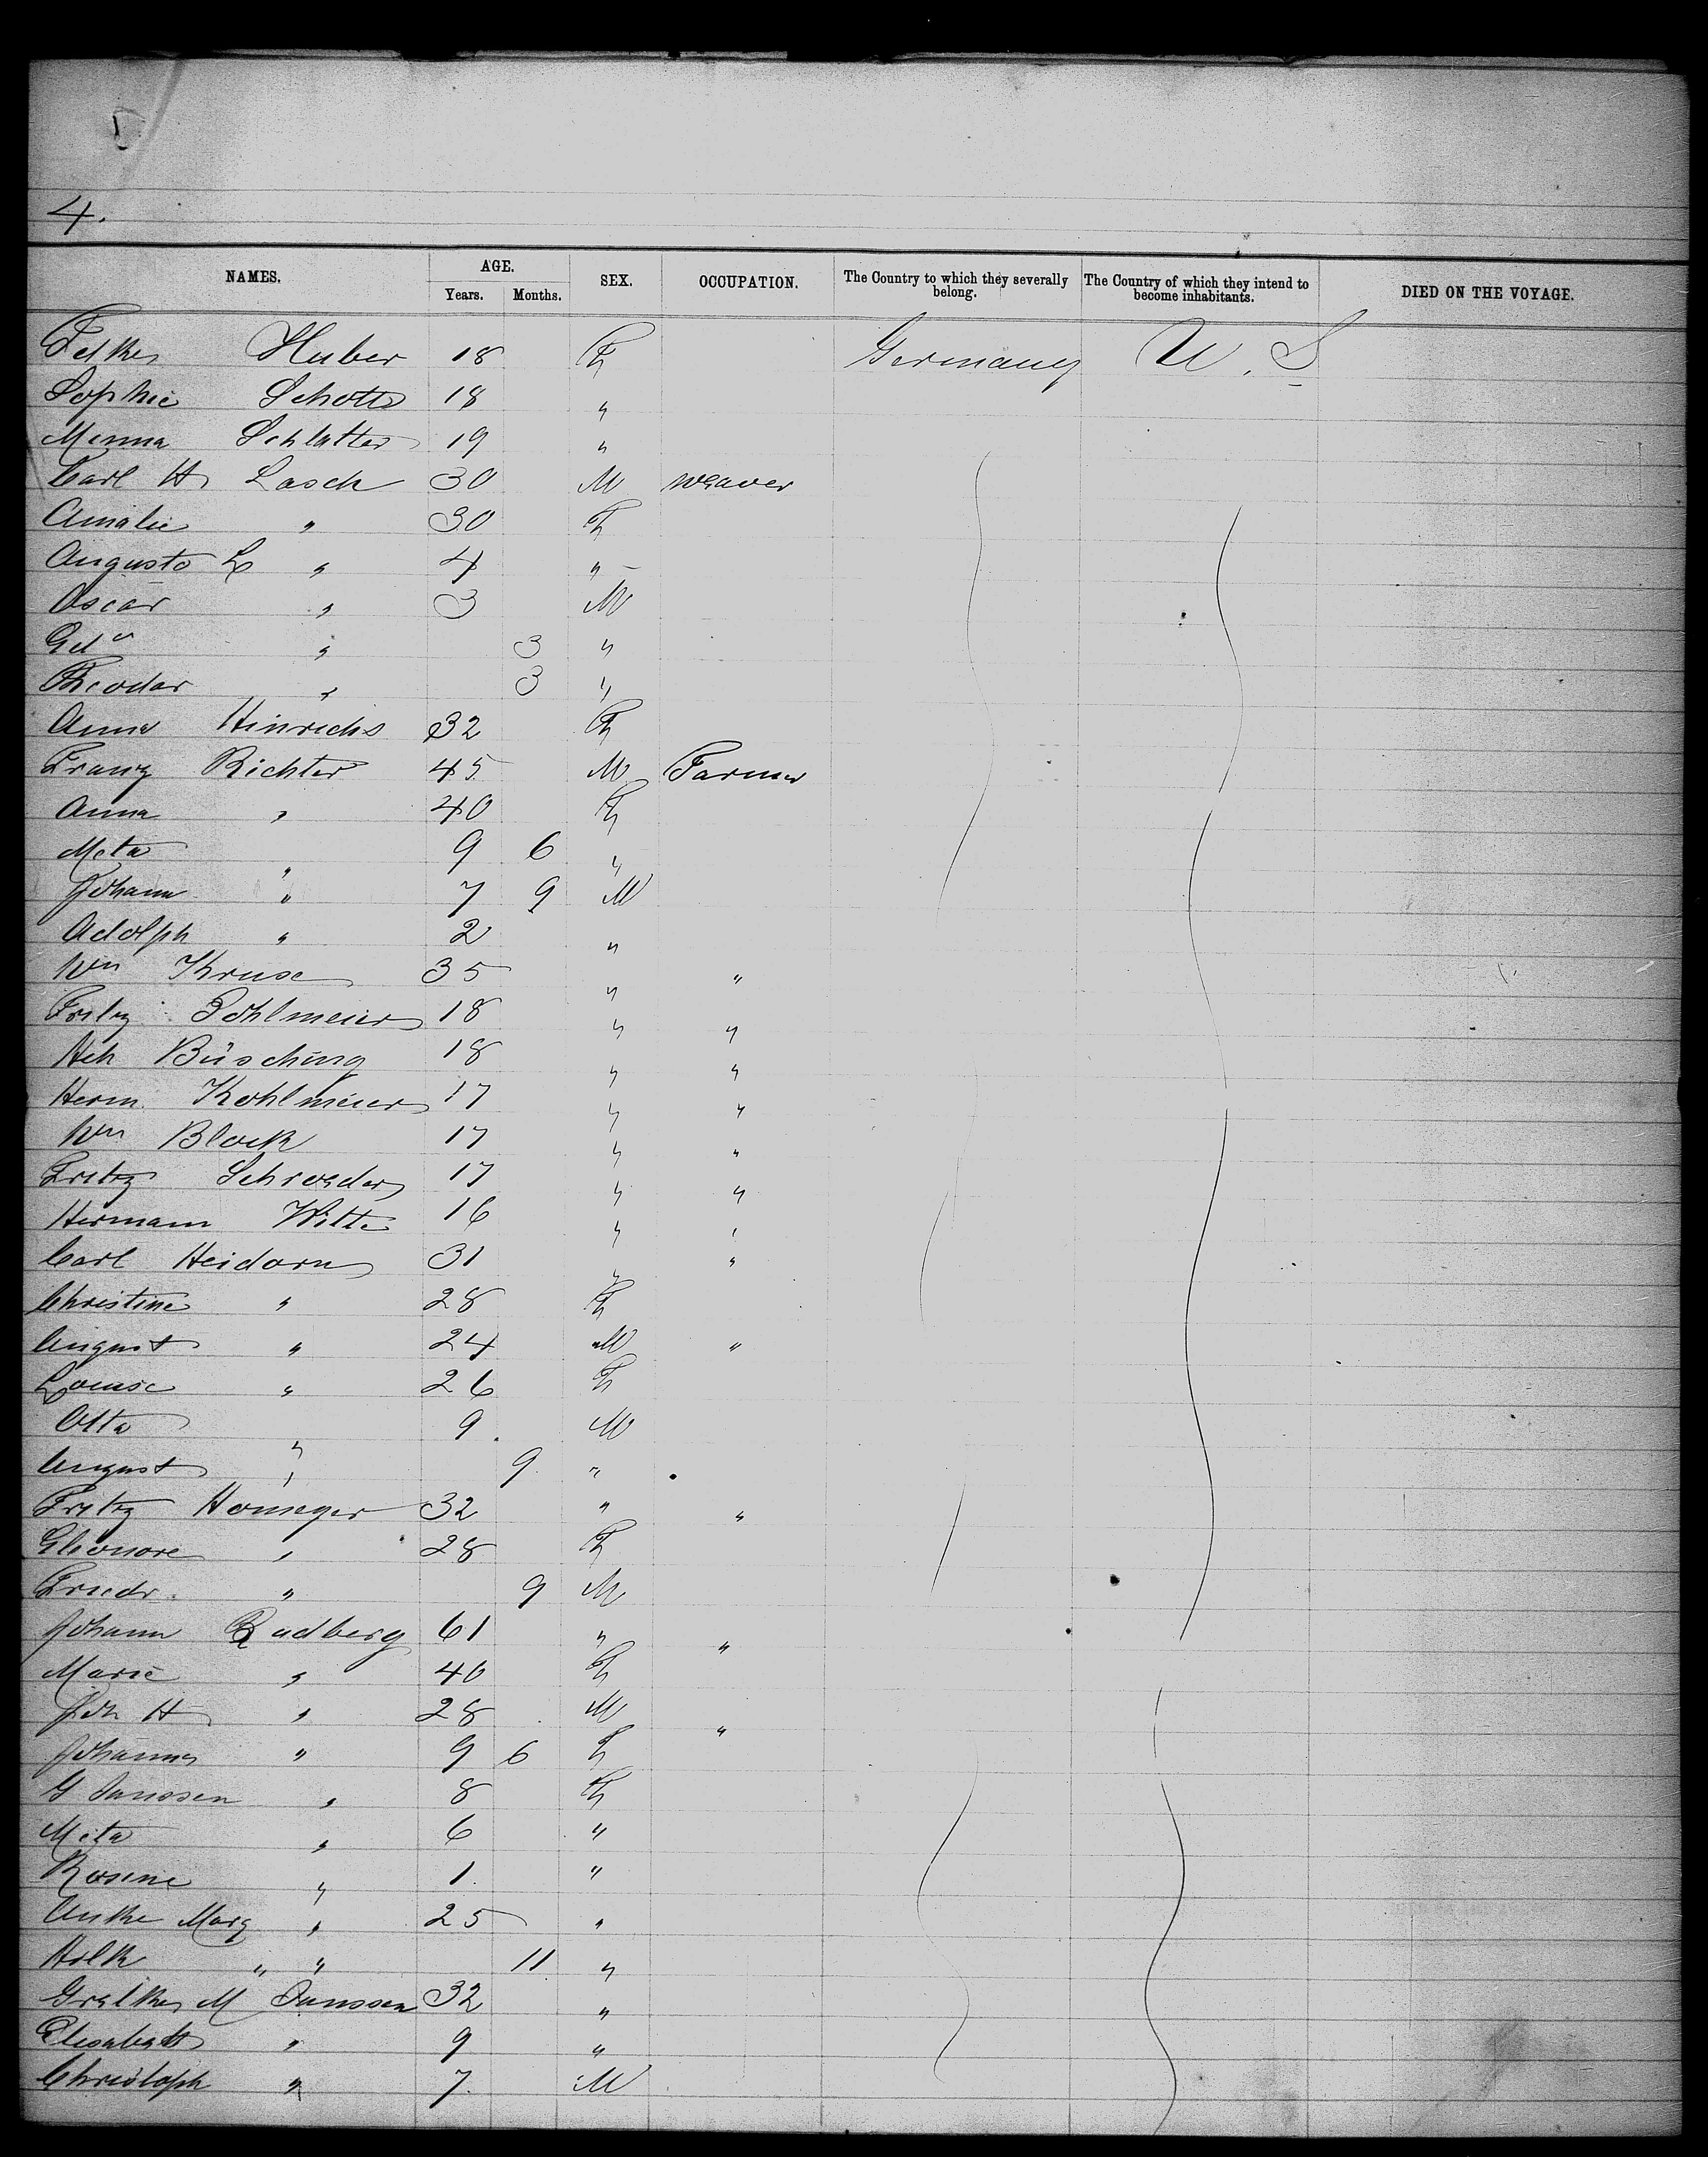 4.
NAMES. AGE. Years. Months. SEX. OCCUPATION. The Country to which they severally belong. The Country of which they intend to become inhabitants. DIED ON THE VOYAGE.
Huber 18 F Germany U. S
Sophie Schotte 18 "
Minna Schlatter 19 "
Carl H. Lasch 30 M weaver
Amalie " 30 F
Auguste L " 4 "
Oscar " 3 M
Edu " 3 "
Theodor " 3 "
Anna Hinrichs 32 F
Franz Richter 45 M Farmer
Anna " 40 F
Meta " 9 6 "
Johann " 7 9 M
Adolph " 2 "
Wm Kruse 35 " "
Fritz Pohlmeier 18 " "
Hch Büsching 18 " "
Herm. Kohlmeier 17 " "
Wm Block 17 " "
Fritz Schroeder 17 " "
Hermann Witte 16 " "
Carl Heidorn 31 " "
Christine " 28 F
August " 24 M "
Louise " 26 F
Otto " 9. M
August " 9 "
Fritz 32 " "
Eleonore " 28 F
Friedr. " 9 M
Johann Radberg 61 " "
Marie " 40 F
Joh H " 28 M "
" 9 6 F
G Janssen " 8 F
Meta " 6 "
Rosine " 1 "
Anke Marg " 25 "
" " 11 "
M Janssen 32 "
Elisabeth " 9 "
Christoph " 7 M